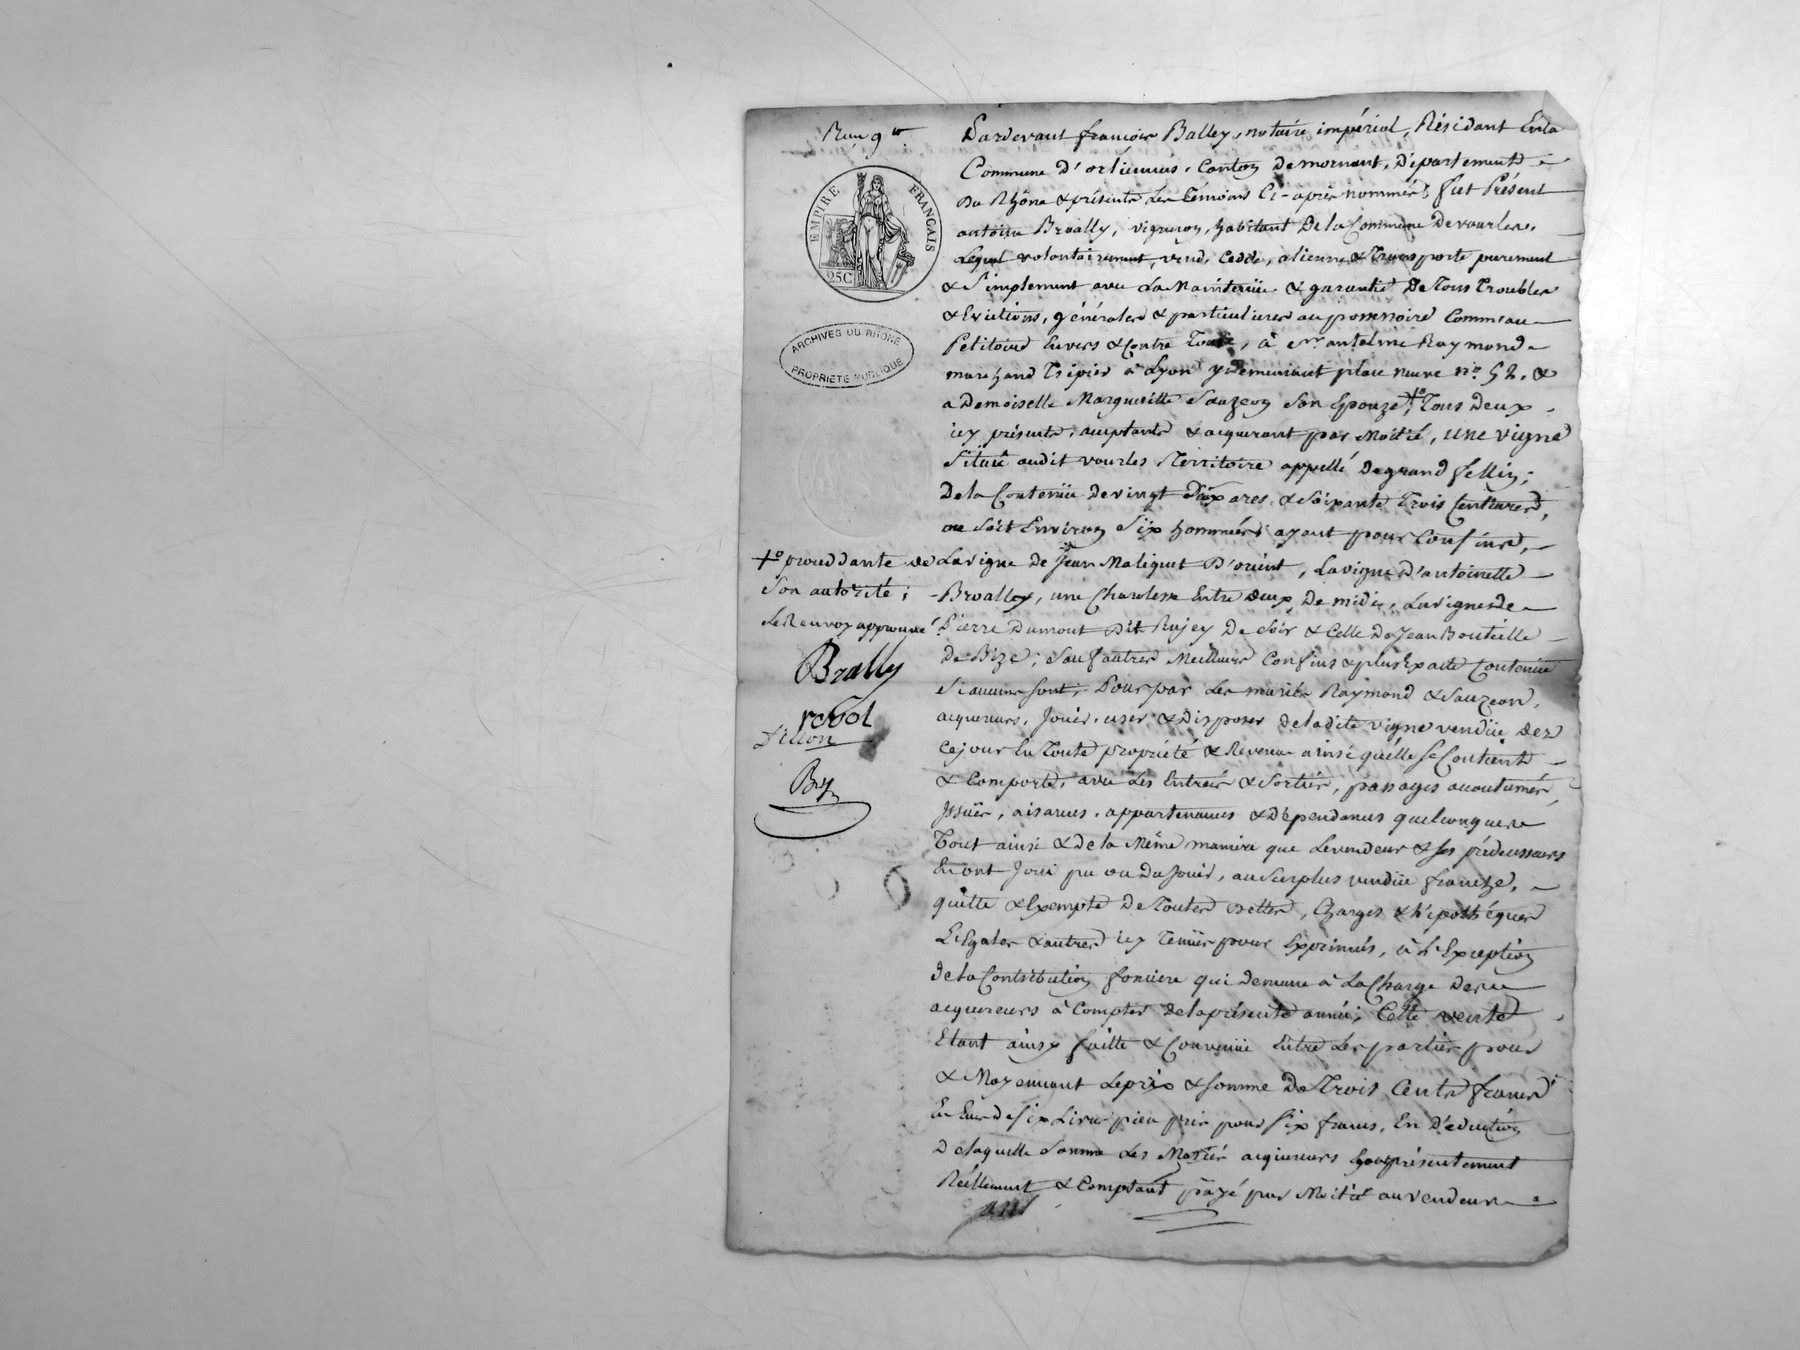 Pardevant françois Balley, notaire impérial, Résidant Enla
Commune d'orliennas, Canton De mornant, Département
Du Rhône & présents Les Témoins Ci-après nommés, fut Présent
antoine Broally, vigneron, habitant De la Commune De vourles,
Lequel volontairement, vend, Cedde, alienne & Transporte purement
& Simplement avec La Maintenüe & garantie De Tous Troubles
& Evictions, générales & particulieres au possessoire Comme au
Petitoire Envers & Contre Tous, à Sr. antelme Raymond
marchand Tripier à Lyon y demeurant place neuve no. 52, &
a Demoiselle Margueritte Sauzeon Son Epouze, +o Tous Deux
icy présents, acceptants & acquerant par Moitié, une vigne
Située audit vourles Territoire appellé De grand fellin;
De la Contenüe de vingt Deux ares & Soixante Trois Centiares,
ou Soit Environ Six hommées; ayant pour Confins,
La vigne de Jean Maliquet D'orient, La vigne D'antoinette
Broalley, une Charolesse Entre deux De midi, La vigne de
Pierre Dumont Dit Rujey De Soir & Celle De Jean Bouteille
De Bize; Sauf autres Meilleurs Confins & plus Exacte Contenüe
Si aucuns Sont, Pour par Les mariés Raymond & Sauzeon,
acquereurs, Jouir, user & Disposer De ladite vigne vendüe Dez
Ce jour En Toute propriété & Revenu ainsi qu'elle Se Contient
& Comporte, avec Les Entrées & Sorties, passages accoutumés,
Issües, aisances, appartenances & Dépendances quelconques
Tout ainsi & De la Même maniere que Le vendeur & Ses prédecesseurs
En ont Joui pu ou Du Jouir, au Surplus vendüe franche,
quitte & Exempte De Toutes Dettes, Charges & hipothéques
Légales & autres icy Tenües pour Exprimées, à L'Exception
de la Contribution fonciere qui demeure à La Charge Des
acquereurs à Compter De la présente année; Cette vente
Etant ainsy faitte & Convenüe Entre Les parties pour
& Moyennant Le prix & Somme De Trois Cents francs
En Ecus de Six Livres pieu pris pour Six francs, En Déduction
De laquelle Somme Les Mariés acquereurs présentement
Réellement & Comptant payé par Moitié au vendeur
EMPIRE FRANÇAIS
25C
ARCHIVES DU RHÔNE
PROPRIÉTÉ PUBLIQUE
+o proceddante de
Son autorité;
Le Renvoy approuvé
Broally
revol